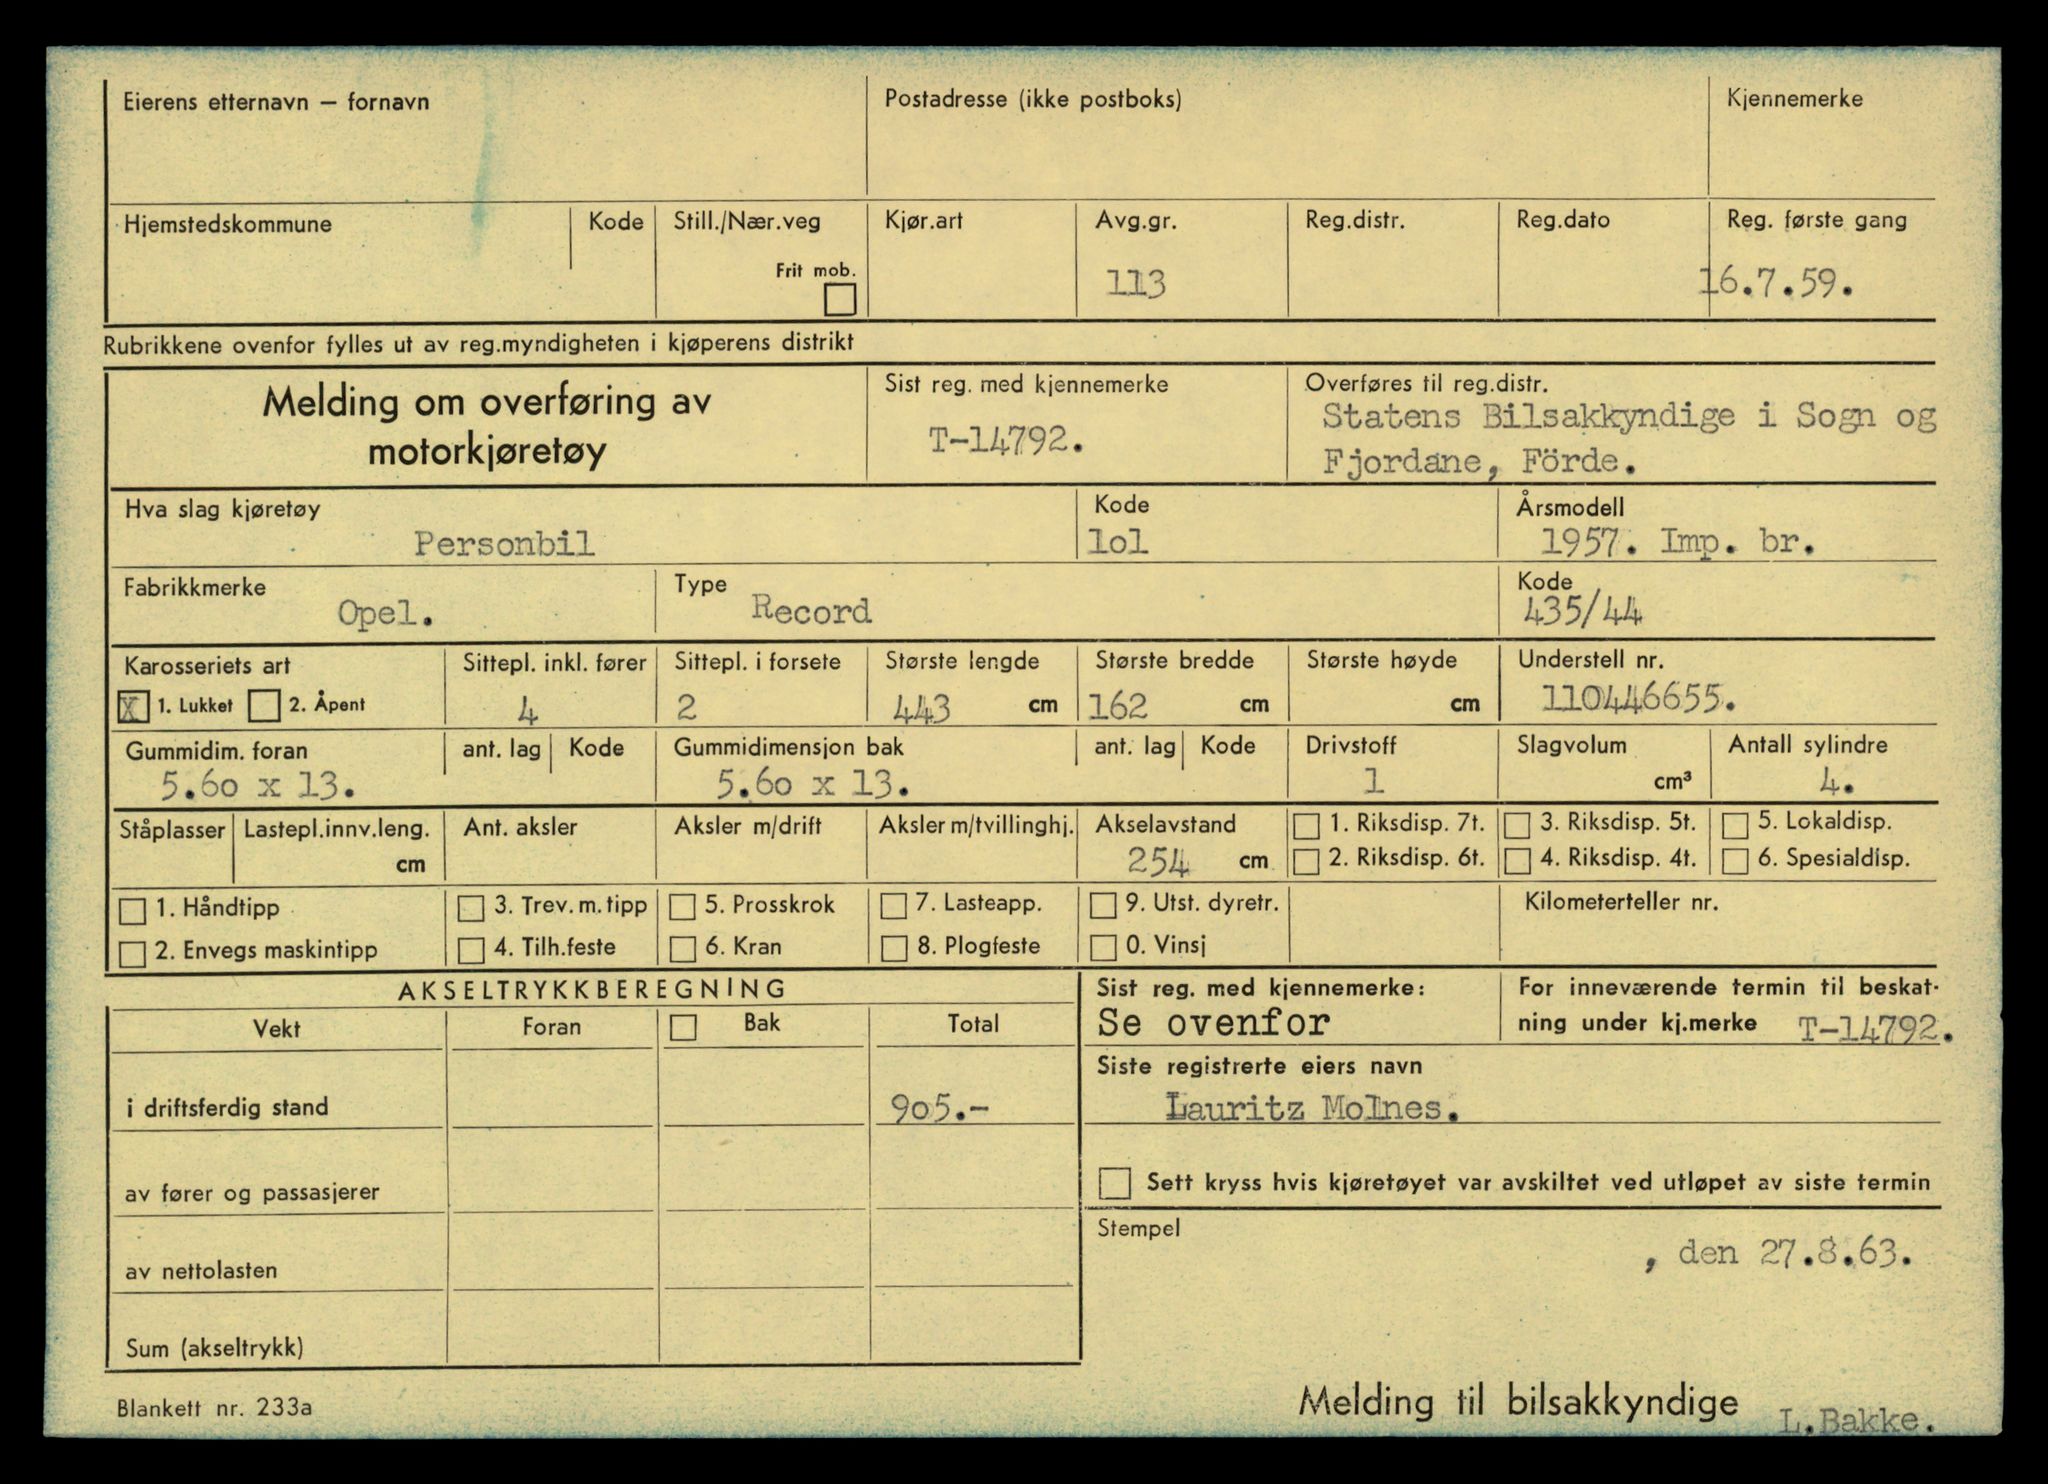 Eierens etternavn – fornavn
Postadresse (ikke postboks)
Kjennemerke
Hjemstedskommune
Kode
Still./Nær.veg
Frit mob.
Kjør.art
Avg.gr.
113
Reg.distr.
Reg.dato
Reg. første gang
16.7.59.
Rubrikkene ovenfor fylles ut av reg.myndigheten i kjøperens distrikt
Melding om overføring av
motorkjøretøy
Sist reg. med kjennemerke
T-14792.
Overføres til reg.distr.
Statens Bilsakkyndige i Sogn og
Fjordane, Förde.
Hva slag kjøretøy
Personbil
Kode
lol
Årsmodell
1957. Imp. br.
Fabrikkmerke
Opel.
Type
Record
Kode
435/44
Karosseriets art
X 1. Lukket 2. Åpent
Sittepl. inkl. fører
4
Sittepl. i forsete
2
Største lengde
443 cm
Største bredde
162 cm
Største høyde
cm
Understell nr.
110446655.
Gummidim. foran
5.60 x 13.
ant. lag
Kode
Gummidimensjon bak
5.60 x 13.
ant. lag
Kode
Drivstoff
1
Slagvolum
cm³
Antall sylindre
4.
Ståplasser
Lastepl.innv.leng.
cm
Ant. aksler
Aksler m/drift
Aksler m/tvillinghj.
Akselavstand
254 cm
1. Riksdisp. 7t.
2. Riksdisp. 6t.
3. Riksdisp. 5t.
4. Riksdisp. 4t.
5. Lokaldisp.
6. Spesialdisp.
1. Håndtipp
2. Envegs maskintipp
3. Trev. m. tipp
4. Tilh.feste
5. Prosskrok
6. Kran
7. Lasteapp.
8. Plogfeste
9. Utst. dyretr.
0. Vinsj
Kilometerteller nr.
AKSELTRYKKBEREGNING
Vekt
Foran
Bak
Total
i driftsferdig stand
905.-
av fører og passasjerer
av nettolasten
Sum (akseltrykk)
Sist reg. med kjennemerke:
Se ovenfor
For inneværende termin til beskat-
ning under kj.merke T-14792.
Siste registrerte eiers navn
Lauritz Molnes.
Sett kryss hvis kjøretøyet var avskiltet ved utløpet av siste termin
Stempel
, den 27.8.63.
Blankett nr. 233a
Melding til bilsakkyndige
L.Bakke.